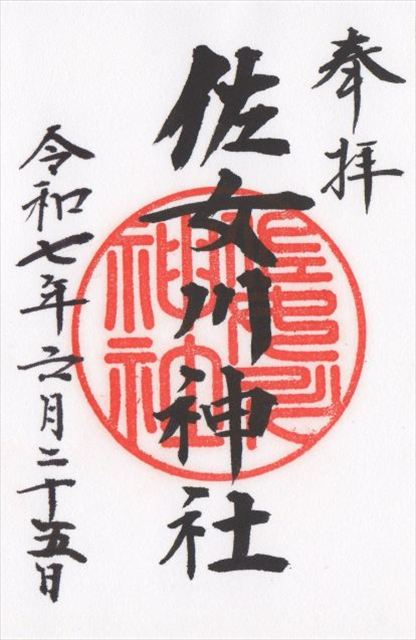 奉拝
佐女川神社
令和七年六月二十五日